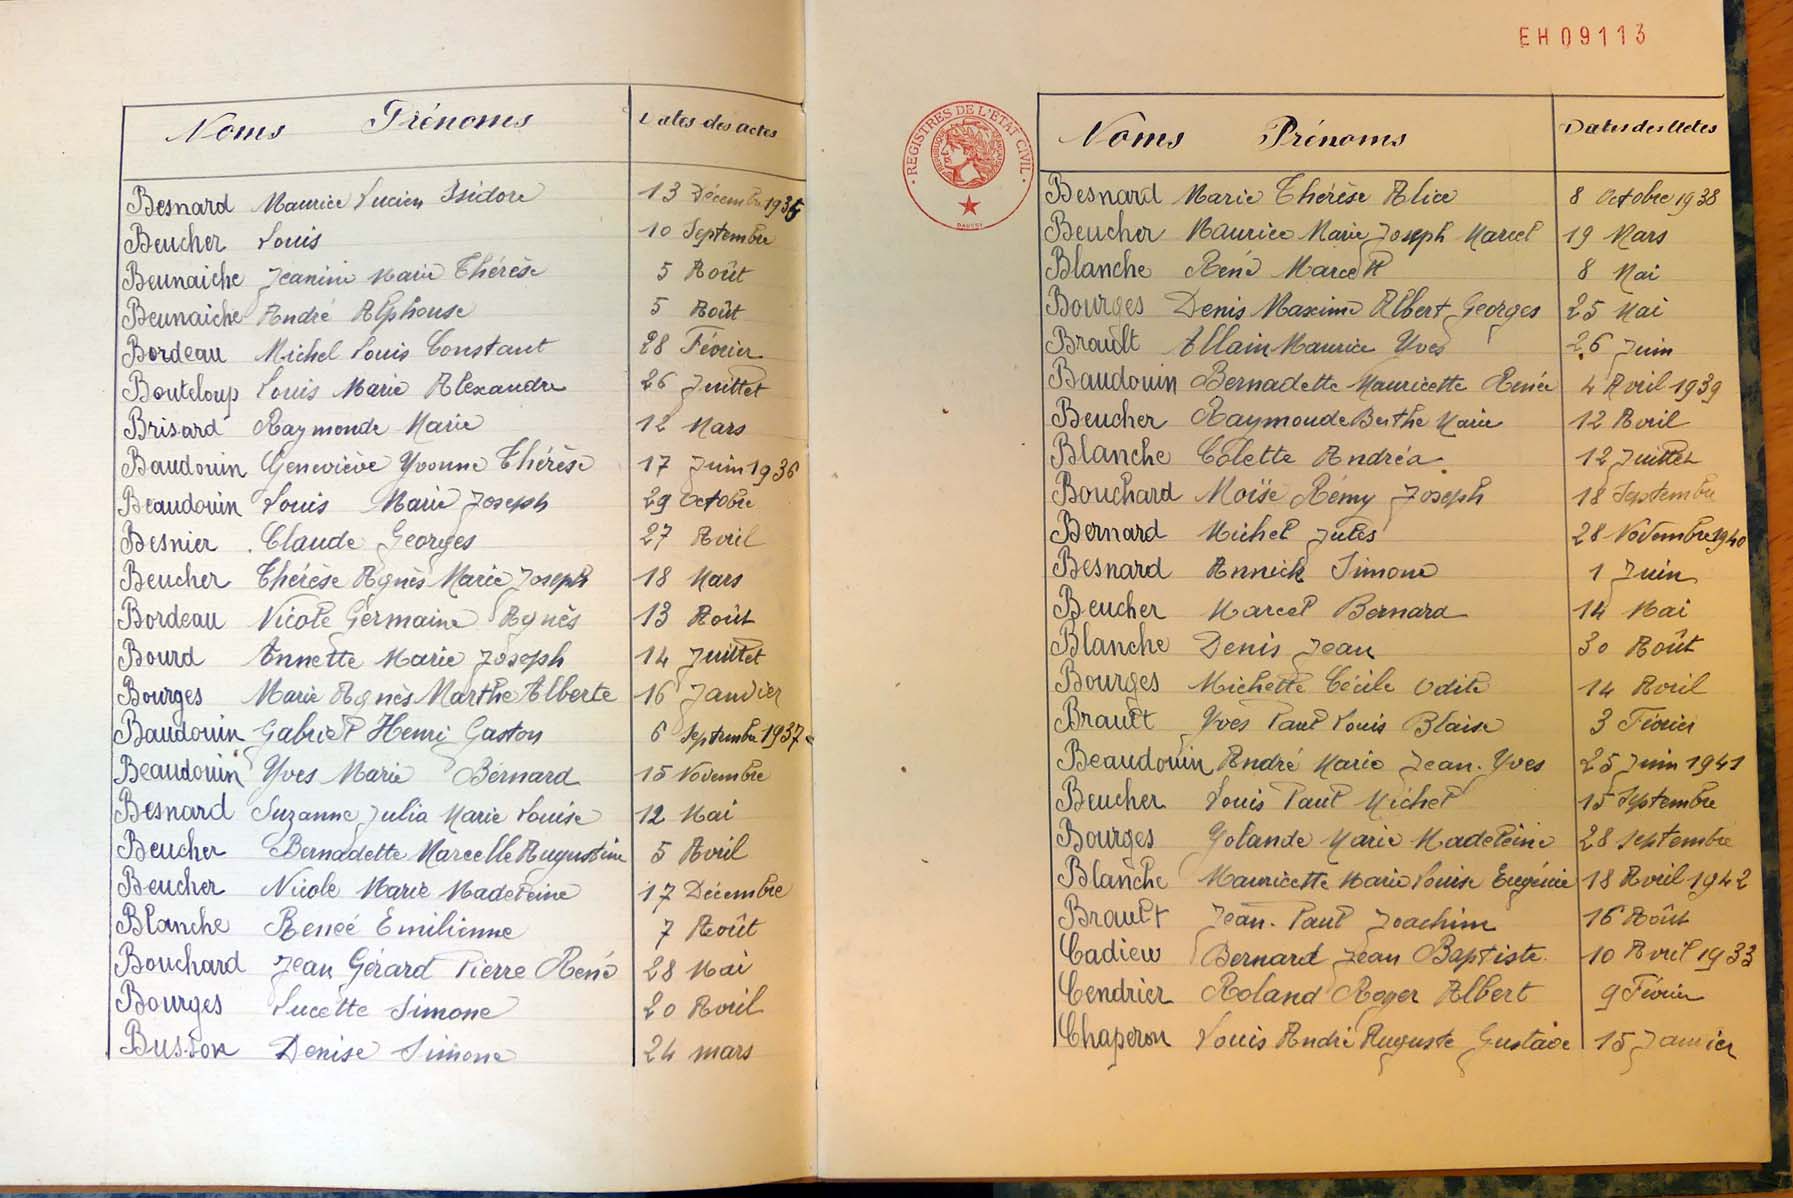 EH09113
Noms Prénoms Dates des actes
Besnard Maurice Lucien Isidore 13 Décembre 1935
Beucher Louis 10 Septembre
Beunaiche Jeanine Marie Thérèse 5 Août
Beunaiche André Alphonse 5 Août
Bordeau Michel Louis Constant 28 Février
Bouteloup Louis Marie Alexandre 26 Juillet
Brisard Raymonde Marie 12 Mars
Baudouin Geneviève Yvonne Thérèse 17 Juin 1936
Beaudouin Louis Marie Joseph 29 Octobre
Besnier Claude Georges 27 Avril
Beucher Thérèse Agnès Marie Joseph 18 Mars
Bordeau Nicole Germaine Agnès 13 Août
Bourd Annette Marie Joseph 14 Juillet
Bourges Marie Agnès Marthe Alberte 16 Janvier
Baudouin Gabriel Henri Gaston 6 Septembre 1937
Beaudouin Yves Marie Bernard 15 Novembre
Besnard Suzanne Julia Marie Louise 12 Mai
Beucher Bernadette Marcelle Augustine 5 Avril
Beucher Nicole Marie Madeleine 17 Décembre
Blanche Reneé Emilienne 7 Août
Bouchard Jean Gérard Pierre René 28 Mai
Bourges Lucette Simone 20 Avril
Busson Denise Simone 24 mars
REGISTRES DE L'ETAT CIVIL
Noms Prénoms Dates des Actes
Besnard Marie Thérèse Alice 8 Octobre 1938
Beucher Maurice Marie Joseph Marcel 19 Mars
Blanche René Marcel 8 Mai
Bourges Denis Maxime Albert Georges 25 Mai
Brault Allain Maurice Yves 26 Juin
Baudouin Bernadette Mauricette Renée 4 Avril 1939
Beucher Raymonde Berthe Marie 12 Avril
Blanche Colette Andréa 12 Juillet
Bouchard Moïse Rémy Joseph 18 Septembre
Bernard Michel Jules 28 Novembre 1940
Besnard Annick Simone 1 Juin
Beucher Marcel Bernard 14 Mai
Blanche Denis Jean 30 Août
Bourges Michelle Cécile Odile 14 Avril
Brault Yves Paul Louis Blaise 3 Février
Beaudouin André Marie Jean-Yves 25 Juin 1941
Beucher Louis Paul Michel 15 Septembre
Bourges Yolande Marie Madeleine 28 Septembre
Blanche Mauricette Marie Louise Eugénie 18 Avril 1942
Brault Jean-Paul Joachim 16 Août
Cadieu Bernard Jean Baptiste 10 Avril 1933
Cendrier Roland Roger Albert 9 Février
Chaperon Louis André Auguste Gustave 15 Janvier